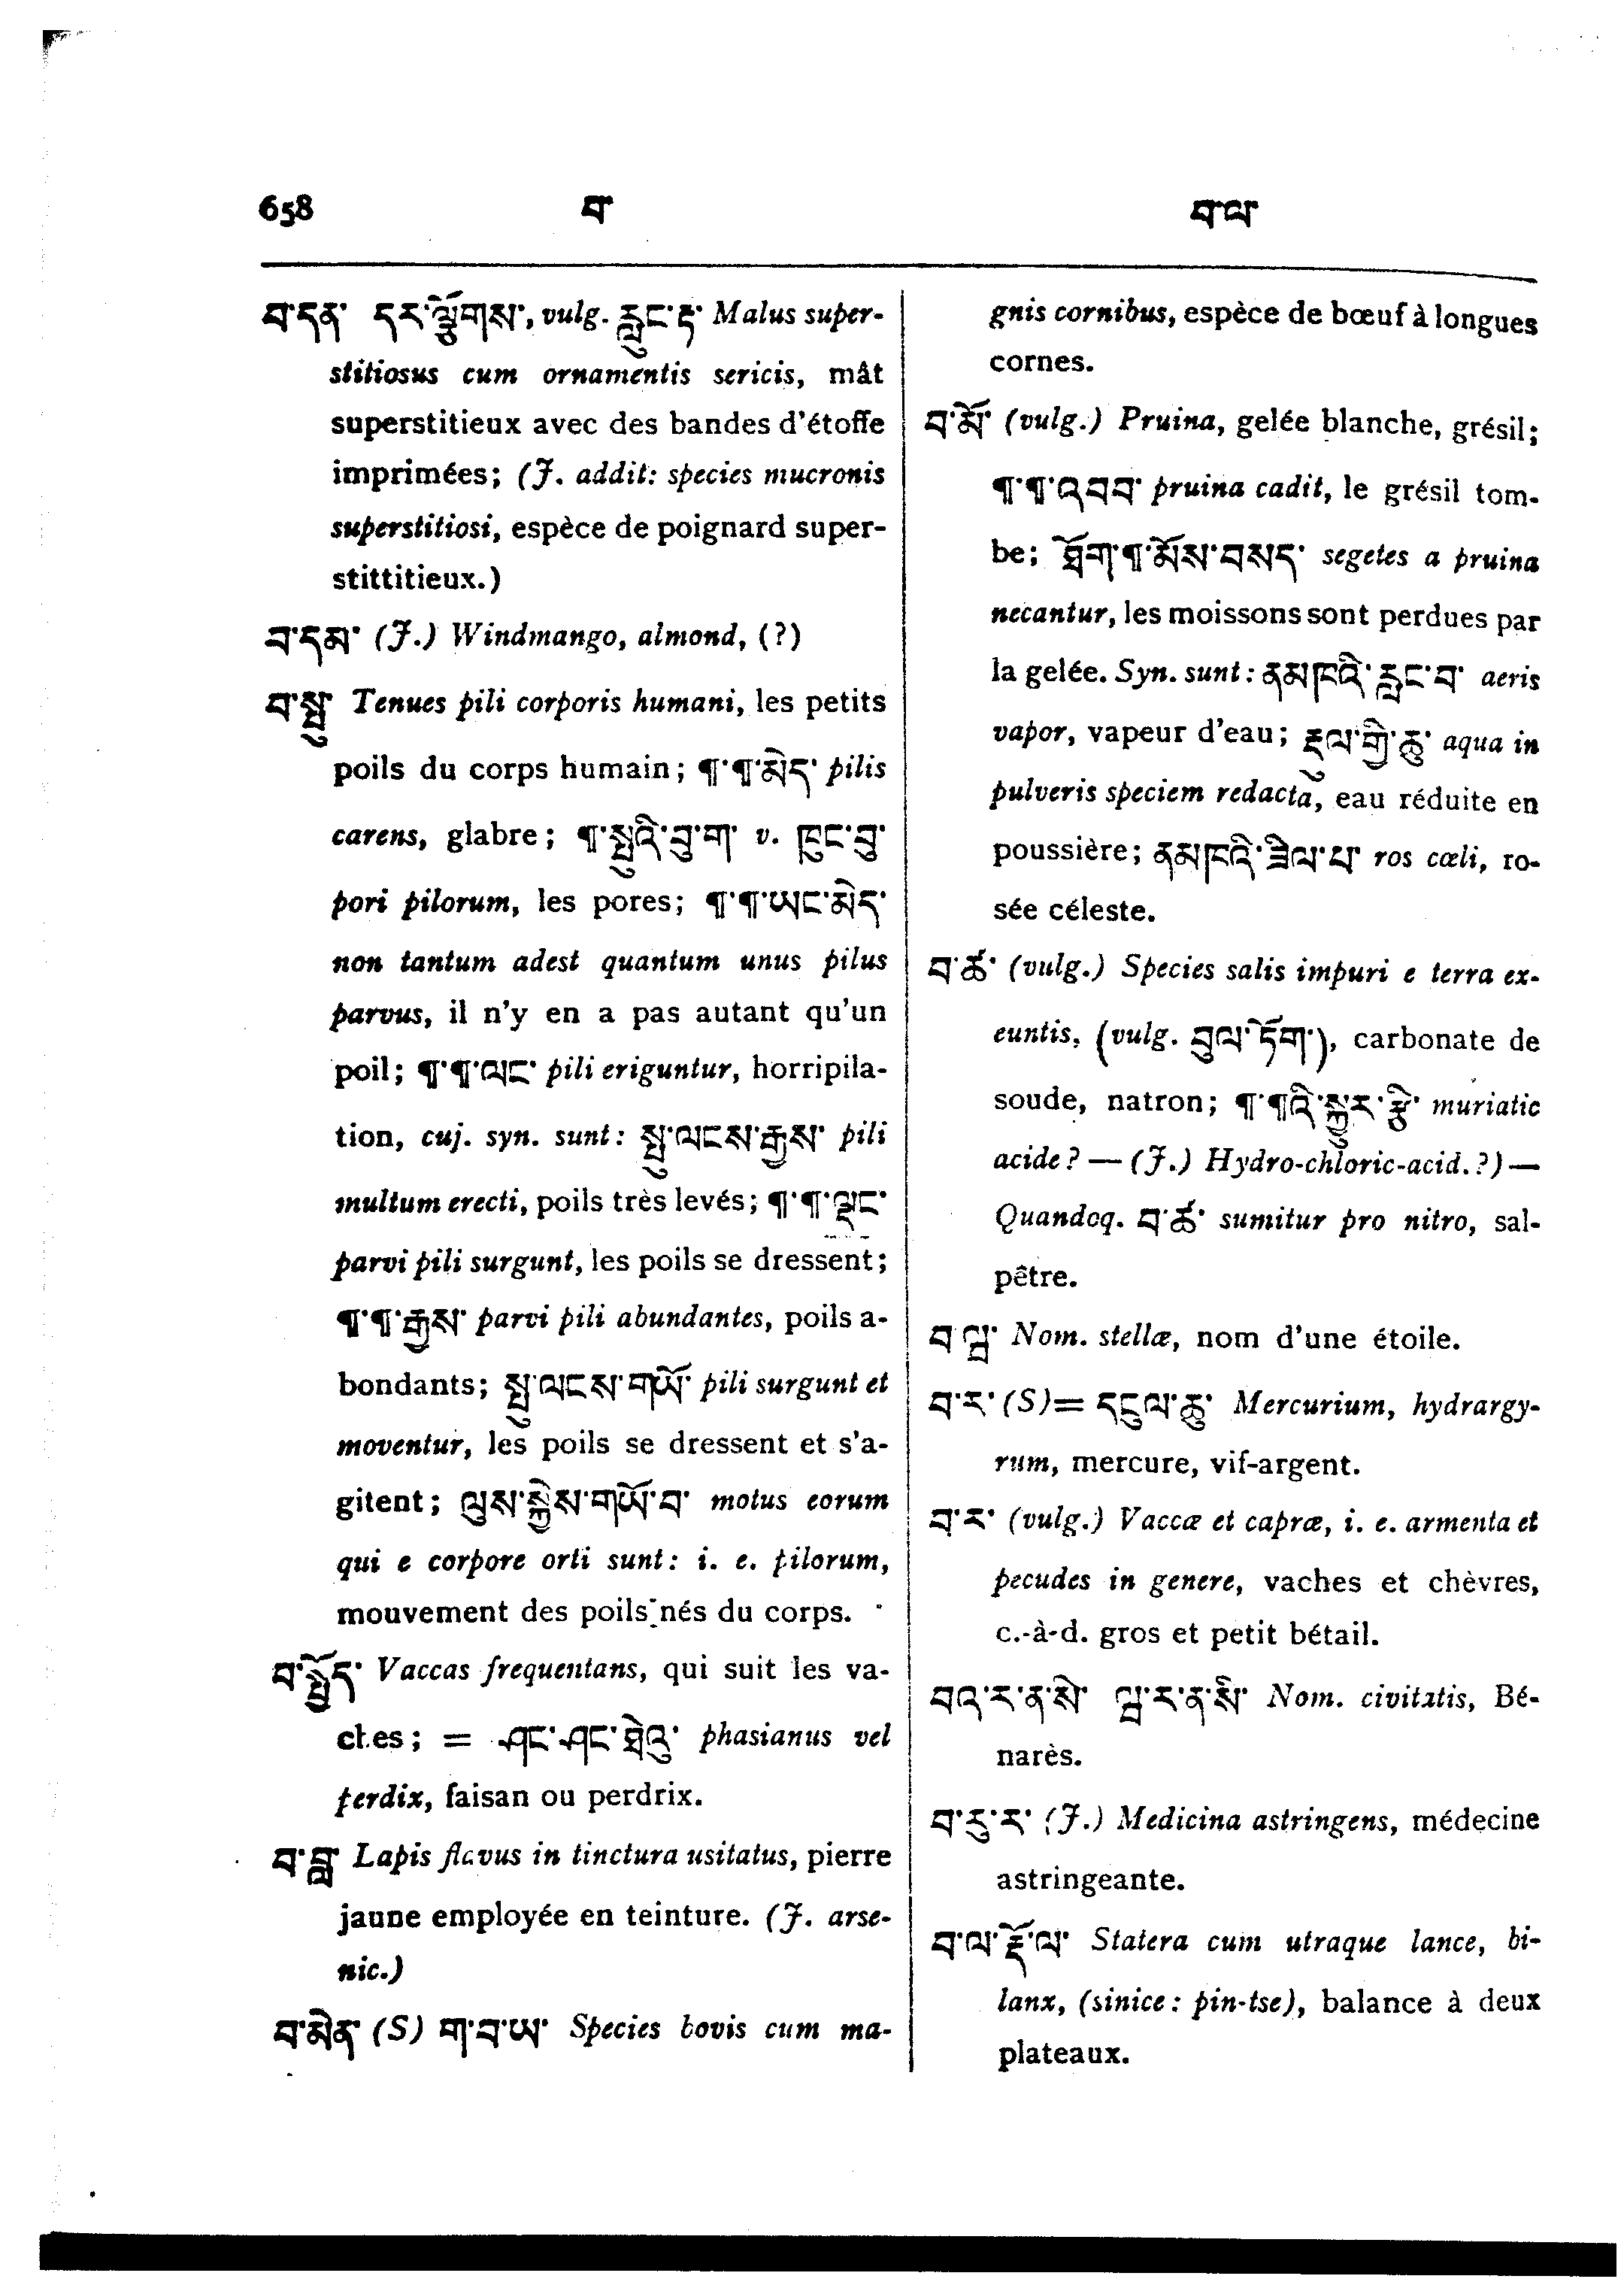 658 བ་ བ་ལ་
བ་དན་ དར་ལྕོགས་, vulg. རླུང་རྟ་ Malus super-
stitiosus cum ornamentis sericis, mât
superstitieux avec des bandes d'étoffe
imprimées; (J. addit: species mucronis
superstitiosi, espèce de poignard super-
stittitieux.)
བ་དམ་ (J.) Windmango, almond, (?)
བ་སྤུ་ Tenues pili corporis humani, les petits
poils du corps humain; ¶་¶་མེད་ pilis
carens, glabre; ¶་སྤུའི་བུ་ག་ v. ཁུང་བུ་
pori pilorum, les pores; ¶་¶་ཡང་མེད་
non tantum adest quantum unus pilus
parvus, il n'y en a pas autant qu'un
poil; ¶་¶་ལང་ pili eriguntur, horripila-
tion, cuj. syn. sunt: སྤུ་ལངས་རྒྱས་ pili
multum erecti, poils très levés; ¶་¶་ལྡང་
parvi pili surgunt, les poils se dressent;
¶་¶་རྒྱས་ parvi pili abundantes, poils a-
bondants; སྤུ་ལངས་གཡོ་ pili surgunt et
moventur, les poils se dressent et s'a-
gitent; ལུས་སྐྱེས་གཡོ་བ་ motus eorum
qui e corpore orti sunt: i. e. pilorum,
mouvement des poils nés du corps.
བ་སྤྱོད་ Vaccas frequentans, qui suit les va-
ches; = ཤང་ཤང་ཐེའུ་ phasianus vel
perdix, faisan ou perdrix.
བ་བླ་ Lapis flavus in tinctura usitatus, pierre
jaune employée en teinture. (J. arse-
nic.)
བ་མེན་ (S) ག་བ་ཡ་ Species bovis cum ma-
gnis cornibus, espèce de bœuf à longues
cornes.
བ་མོ་ (vulg.) Pruina, gelée blanche, grésil;
¶་¶་འབབ་ pruina cadit, le grésil tom-
be; ཐོག་¶་མོས་བསད་ segetes a pruina
necantur, les moissons sont perdues par
la gelée. Syn. sunt: ནམཁའི་རླང་བ་ aeris
vapor, vapeur d'eau; རྡུལ་གྱི་ཆུ་ aqua in
pulveris speciem redacta, eau réduite en
poussière; ནམཁའི་ཟིལ་པ་ ros cæli, ro-
sée céleste.
བ་ཚ་ (vulg.) Species salis impuri e terra ex-
euntis, (vulg. བུལ་ཏོག་), carbonate de
soude, natron; ¶་¶འི་སྐྱུར་རྩི་ muriatic
acide? — (J.) Hydro-chloric-acid.?) —
Quandoq. བ་ཚ་ sumitur pro nitro, sal-
pêtre.
བ་ལྷ་ Nom. stellæ, nom d'une étoile.
བ་ར་ (S)= དངུལ་ཆུ་ Mercurium, hydrargy-
rum, mercure, vif-argent.
བ་ར་ (vulg.) Vaccæ et capræ, i. e. armenta et
pecudes in genere, vaches et chèvres,
c.-à-d. gros et petit bétail.
བའ་ར་ན་སེ་ ལྷ་ར་ན་སི་ Nom. civitatis, Bé-
narès.
བ་རུ་ར་ (J.) Medicina astringens, médecine
astringeante.
བ་ལ་རྡོ་ལ་ Statera cum utraque lance, bi-
lanx, (sinice: pin-tse), balance à deux
plateaux.